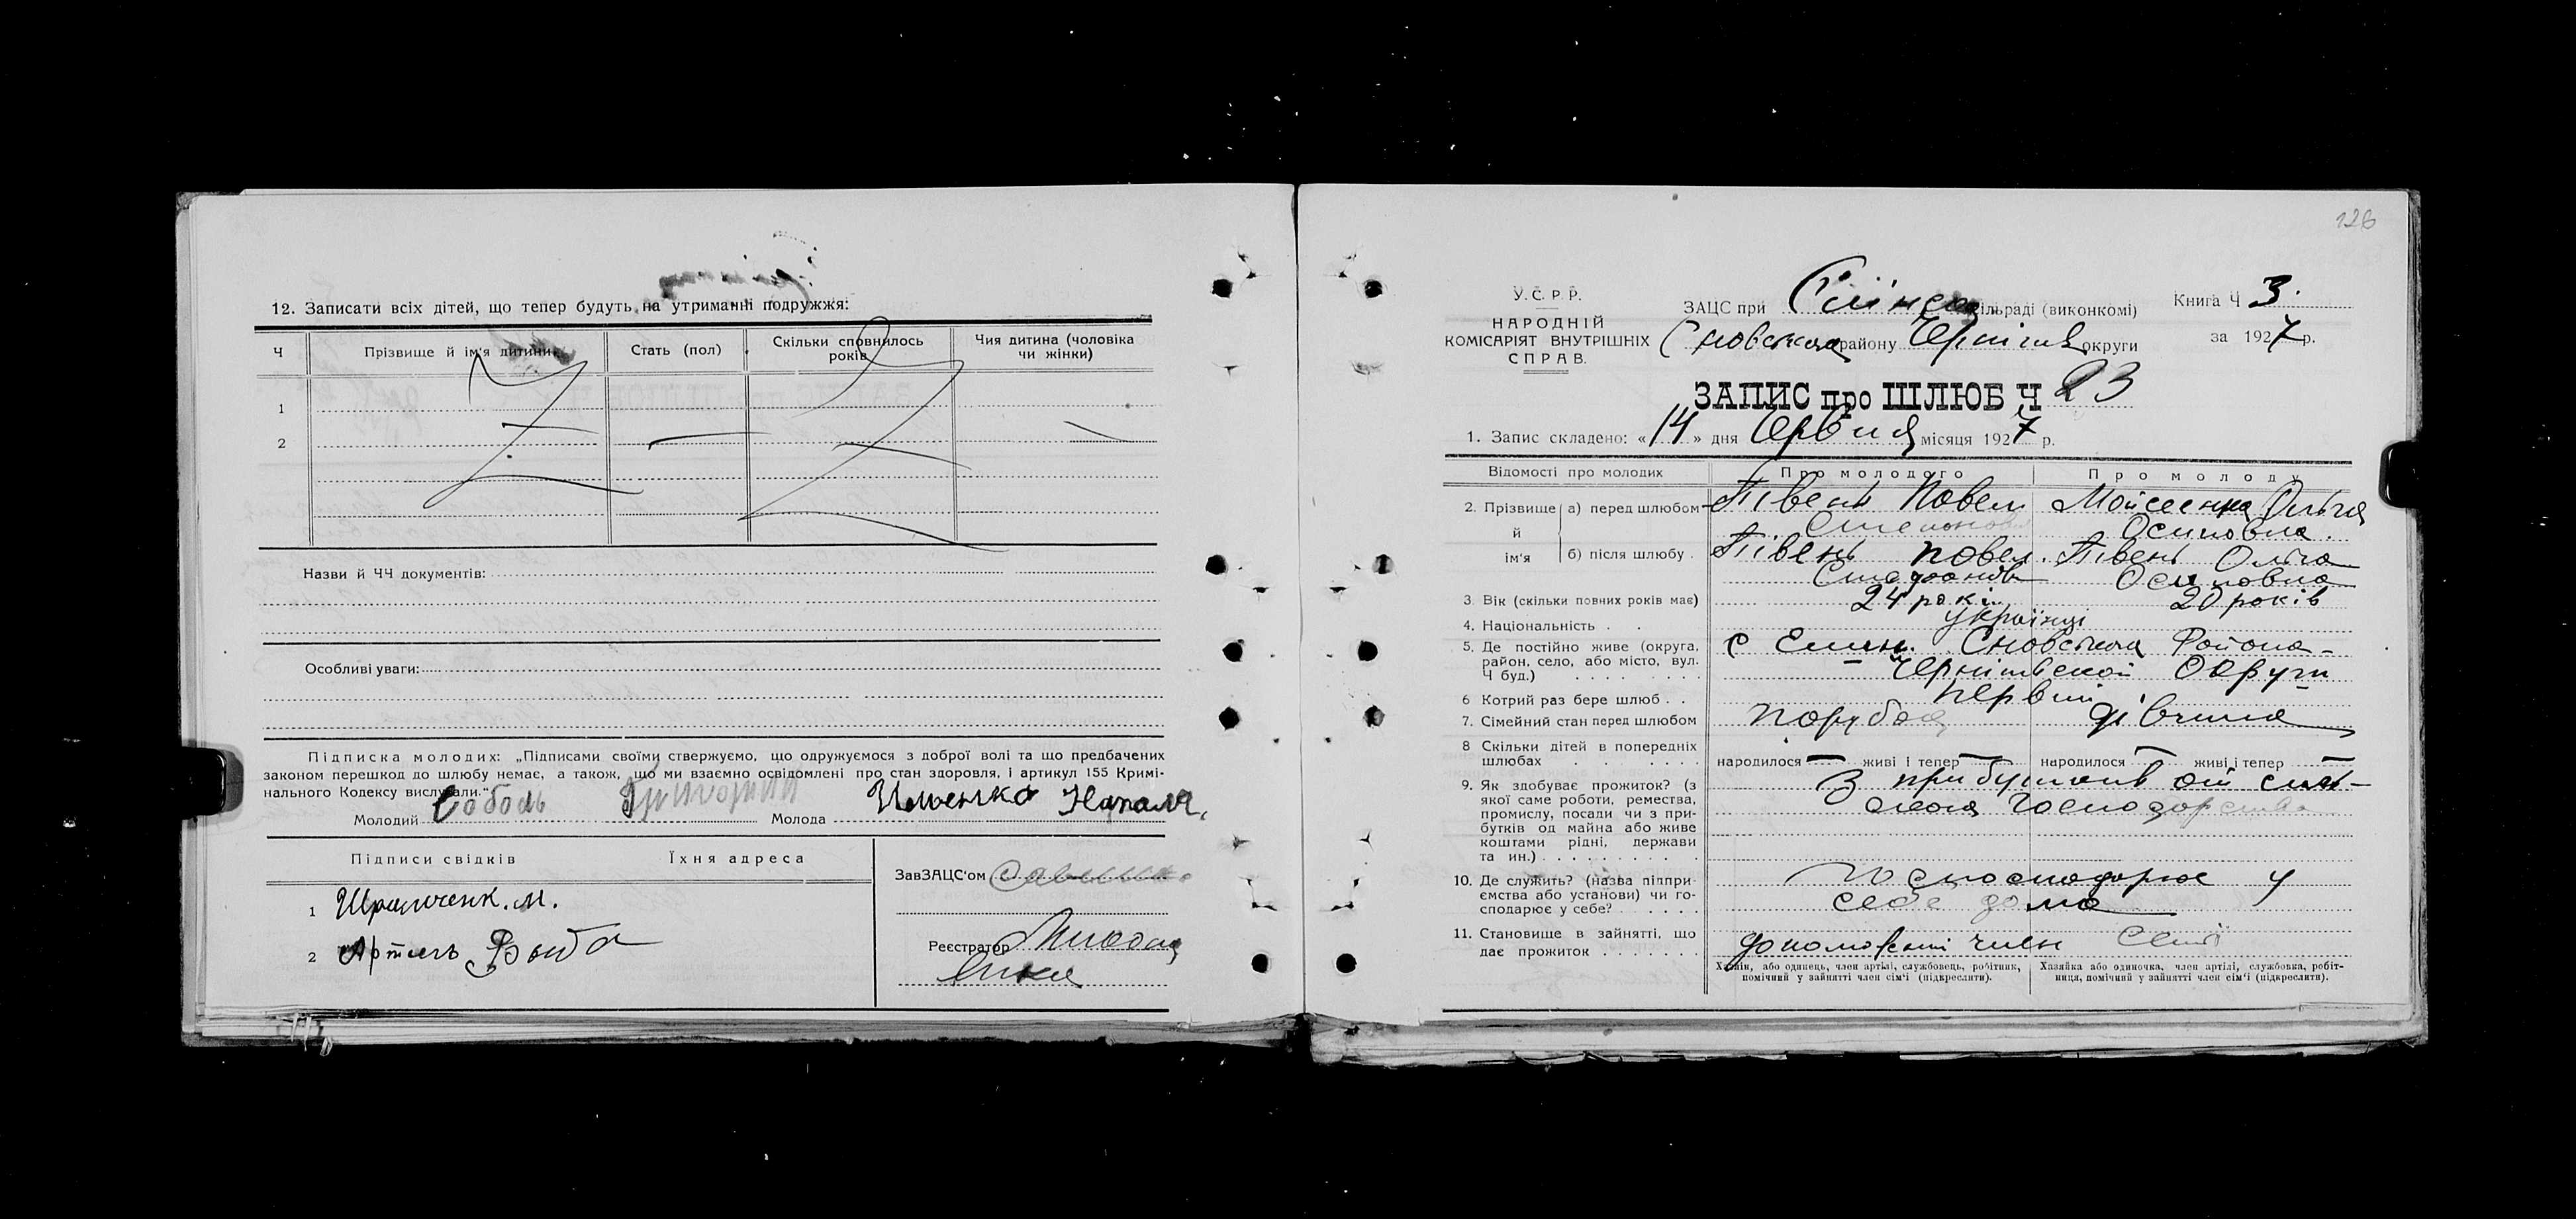 12. Записати всіх дітей, що тепер будуть на утриманні подружжя:
Ч
Прізвище й ім'я дитини
Стать (пол)
Скільки сповнилось років
Чия дитина (чоловіка чи жінки)
1
2
Назви й ЧЧ документів:
Особливі уваги:
Підписка молодих: „Підписами своїми стверджуємо, що одружуємося з доброї волі та що предбачених
законом перешкод до шлюбу немає, а також, що ми взаємно освідомлені про стан здоров'я, і артикул 155 Кримі-
нального Кодексу вислухали."
Молодий Соболь Григорий Молода
Підписи свідків Їхня адреса
1
2 Рыба
ЗавЗАЦС'ом
Реєстратор
126
У.С.Р.Р.
НАРОДНІЙ
КОМІСАРІЯТ ВНУТРІШНІХ
СПРАВ.
ЗАЦС при сільраді (виконкомі)
Сновського району Чернігів округи
Книга Ч 3.
за 1927 р.
ЗАПИС про ШЛЮБ Ч 23
1. Запис складено: «14» дня Червня місяця 1927 р.
Відомості про молодих Про молодого Про молоду
2. Прізвище й ім'я
а) перед шлюбом Півень Павел Мойсеенко Ольга
Осиповна.
б) після шлюбу Півень Павел. Півень Ольга
Осиповна
3. Вік (скільки повних років має) 24 років 20 років
4. Національність українці
5. Де постійно живе (округа,
район, село, або місто, вул.
Ч буд.)
с Елин. Сновського Района
Чернігівской Округи
6 Котрий раз бере шлюб первий
7. Сімейний стан перед шлюбом парубок дівчина
8 Скільки дітей в попередніх
шлюбах
народилося — живі і тепер — народилося — живі і тепер —
9. Як здобуває прожиток? (з
якої саме роботи, ремества,
промислу, посади чи з при-
бутків од майна або живе
коштами рідні, держави
та ин.)
З прибутков от сель-
ского господарства
10. Де служить? (назва підпри-
ємства або установи) чи го-
сподарює у себе?
у
себе дома
11. Становище в зайнятті, що
дає прожиток
член семї
Хазяїн, або одинець, член артілі, службовець, робітник,
помічний у зайнятті член сім'ї (підкреслити).
Хазяйка або одиночка, член артілі, службовка, робіт-
ниця, помічний у зайнятті член сім'ї (підкреслити).